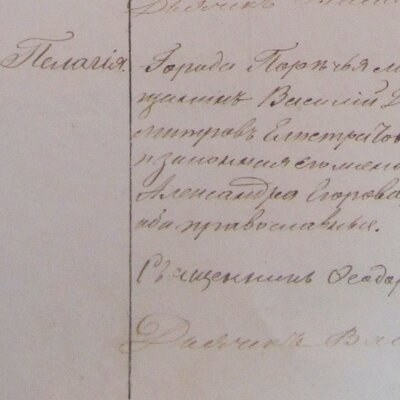 Дьячекъ
Пелагія.
Города Порѣчья м
щанинъ Василій Д
митровъ Елистра
и законная его жена
Александра Егорова,
оба православные.
Священникъ Ѳеодо
Дьячекъ Вас